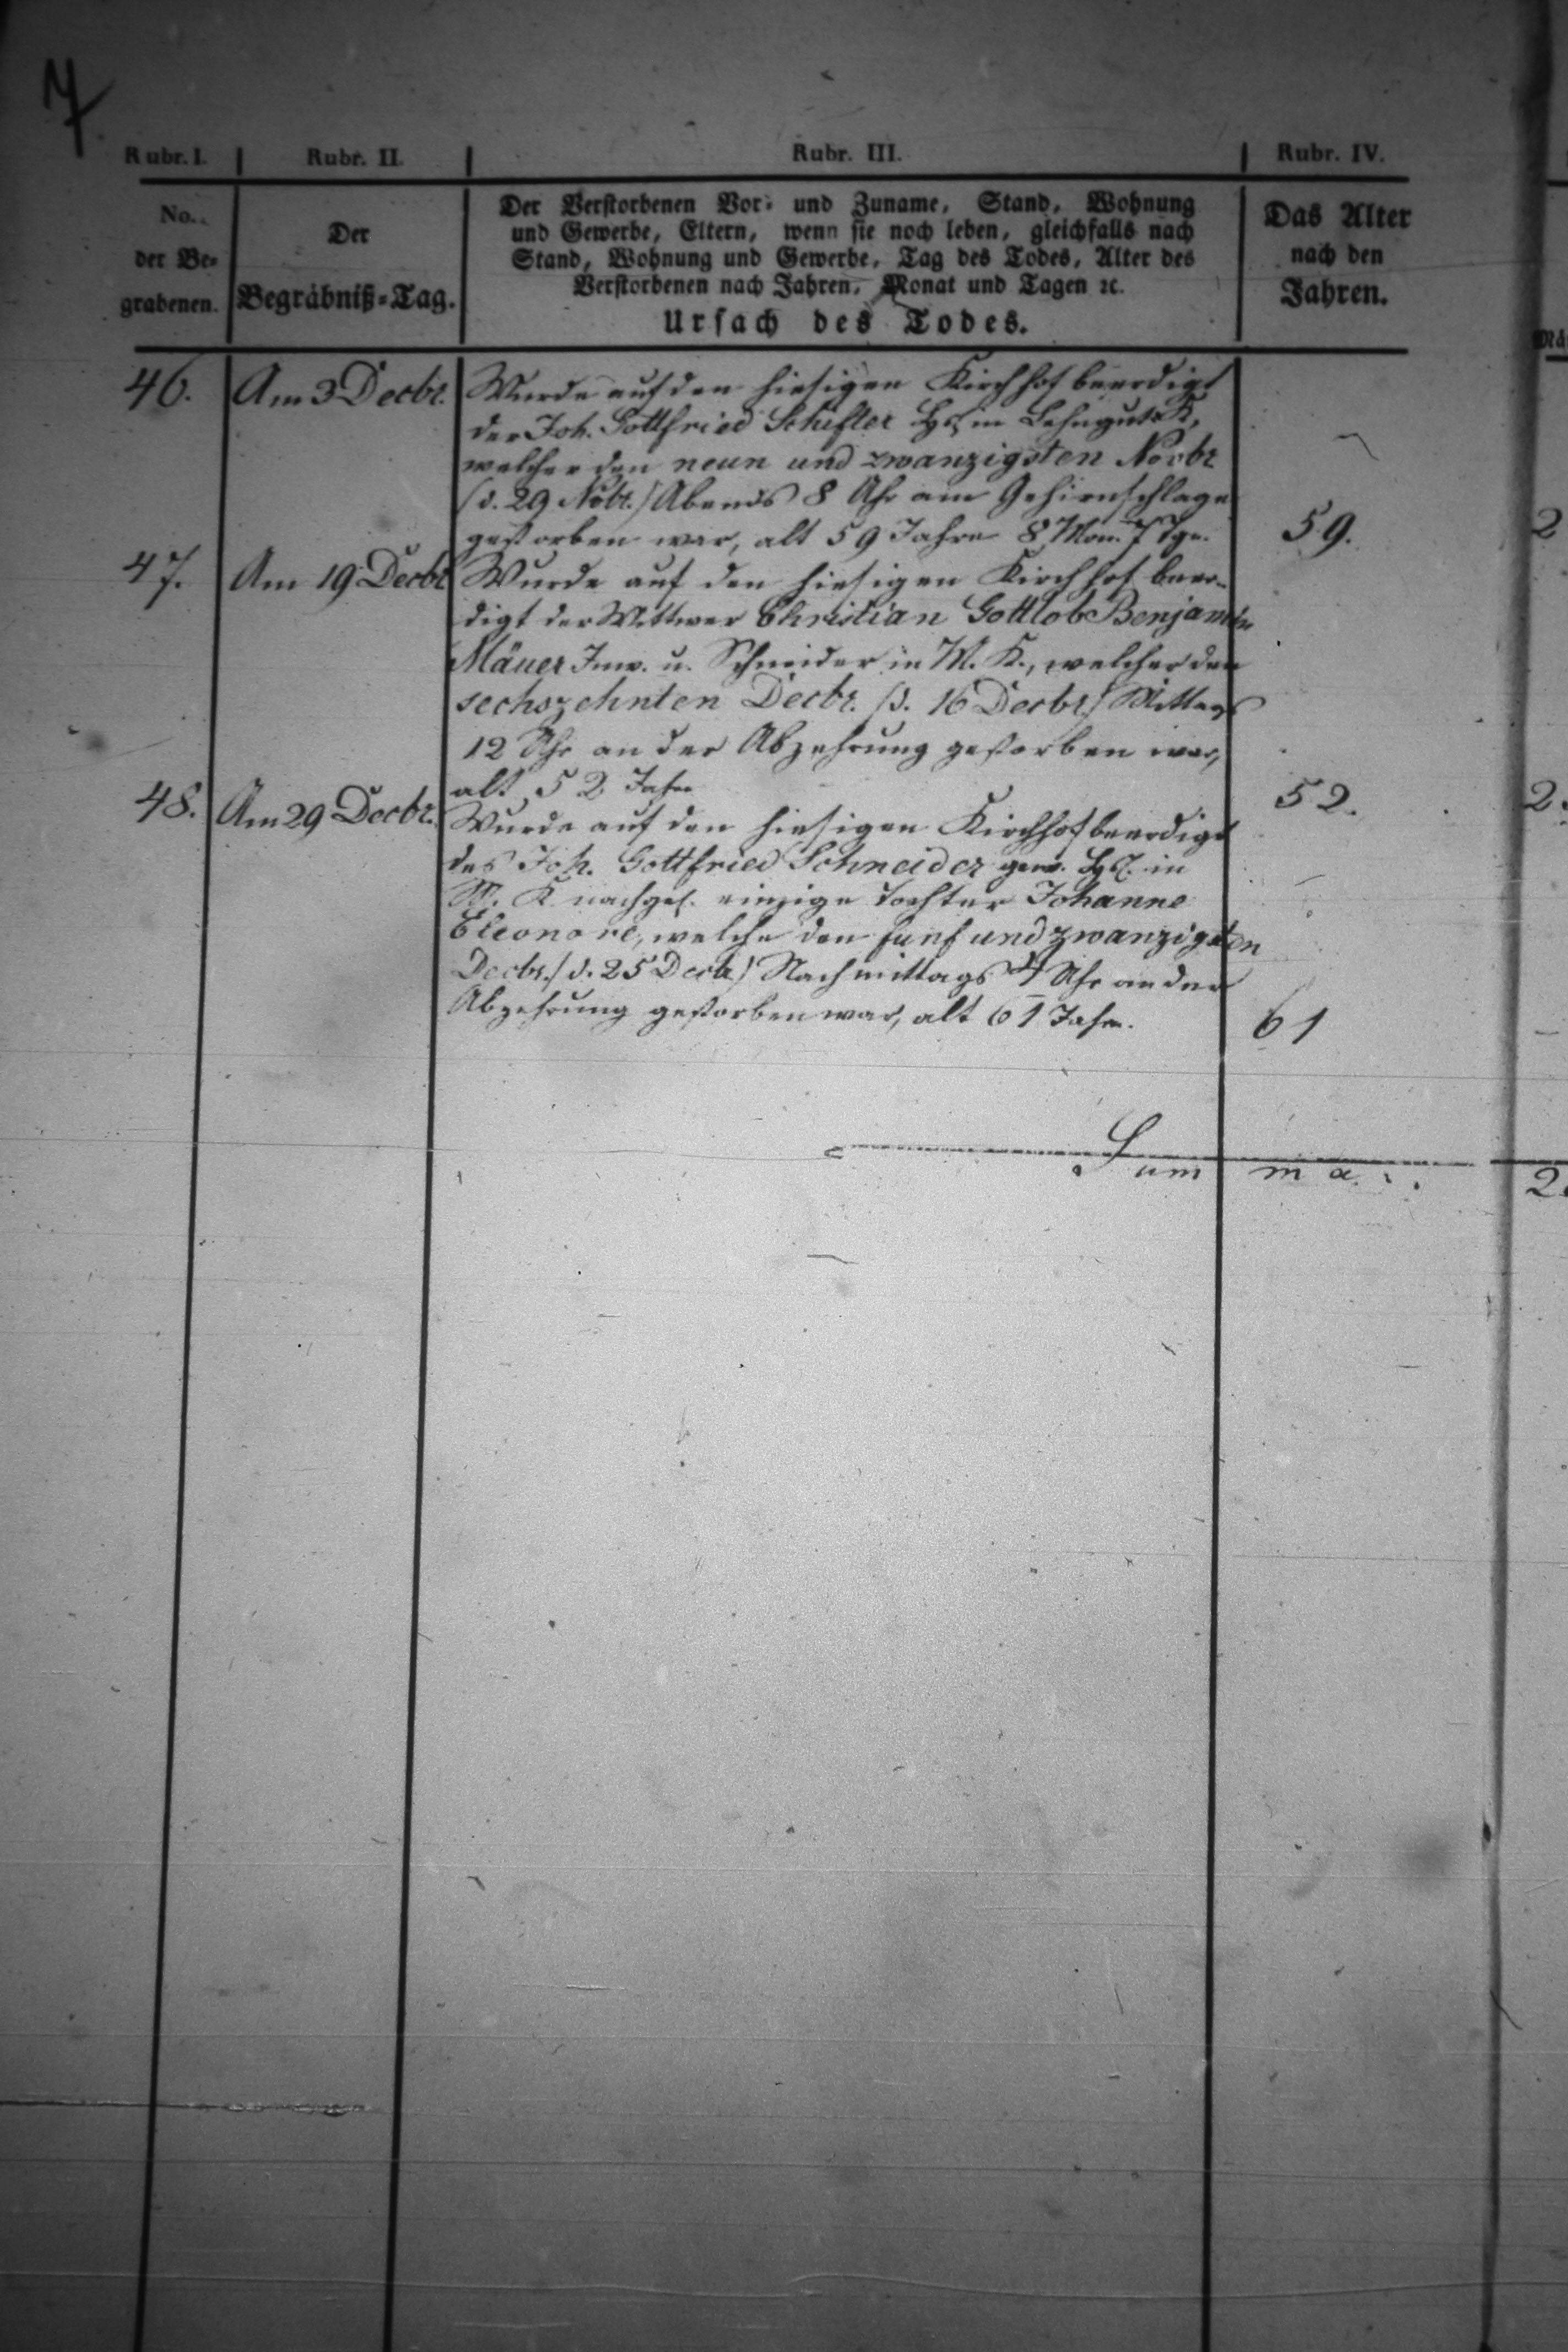 7
Rubr. I. Rubr. II. Rubr. III. Rubr. IV.
No.
der Be-
grabenen.
Der
Begräbniß-Tag.
Der Verstorbenen Vor- und Zuname, Stand, Wohnung
und Gewerbe, Eltern, wenn sie noch leben, gleichfalls nach
Stand, Wohnung und Gewerbe, Tag des Todes, Alter des
Verstorbenen nach Jahren, Monat und Tagen ꝛc.
Ursach des Todes.
Das Alter
nach den
Jahren.
46. Am 3 Decbr. Wurde auf den hiesigen Kirchhof beerdigt
der Joh. Gottfried Schifter in Lehngut K,
welcher den neun und zwanzigsten Novbr
(d. 29 Nobr.) Abends 8 Uhr am Gehirnschlage
gestorben war, alt 59 Jahre 8 Mon. 7 Tge. 59.
47. Am 19 Decbr Wurde auf den hiesigen Kirchhof beer-
digt der Wittwer Christian Gottlob Benjamin
Mäuer Inw. u. Schneider in M. K., welcher den
sechszehnten Decbr. (d. 16 Decbr.) Mittags
12 Uhr an der Abzehrung gestorben war,
alt 52 Jahr 52.
48. Am 29 Decbr. Wurde auf den hiesigen Kirchhof beerdigt
des Joh. Gottfried Schneider gew. in
K. nachgel. einzige Tochter Johanne
Eleonore, welche den funf und zwanzigsten
Decbr. (d. 25 Decbr) Nachmittags 4 Uhr an der
Abzehrung gestorben war, alt 61 Jahr. 61
Summa